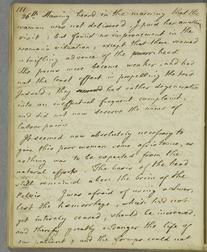 111
26th Having heard in the morning that the
woman was not delivered, I paid her another
visit, but found no improvement in the
woman's situation, except that there seemed
a trifling advance of the head.
The pains were become weaker, and had
not the least effect in propelling the head
forwards, they had rather degenerated
into an ineffectual frequent complaint,
and did not now deserve the name of
labour pains.
It seemed now absolutely necessary to
give this poor woman some assistance, as
nothing was to be expected from the
natural efforts. The basis of the head
still remained above the brim of the
Pelvis. I was afraid of using
lest the hemorrhage, which had not
yet intirely ceased, should be increased,
and thereby greatly endanger the life of
our patient; and the forceps could not